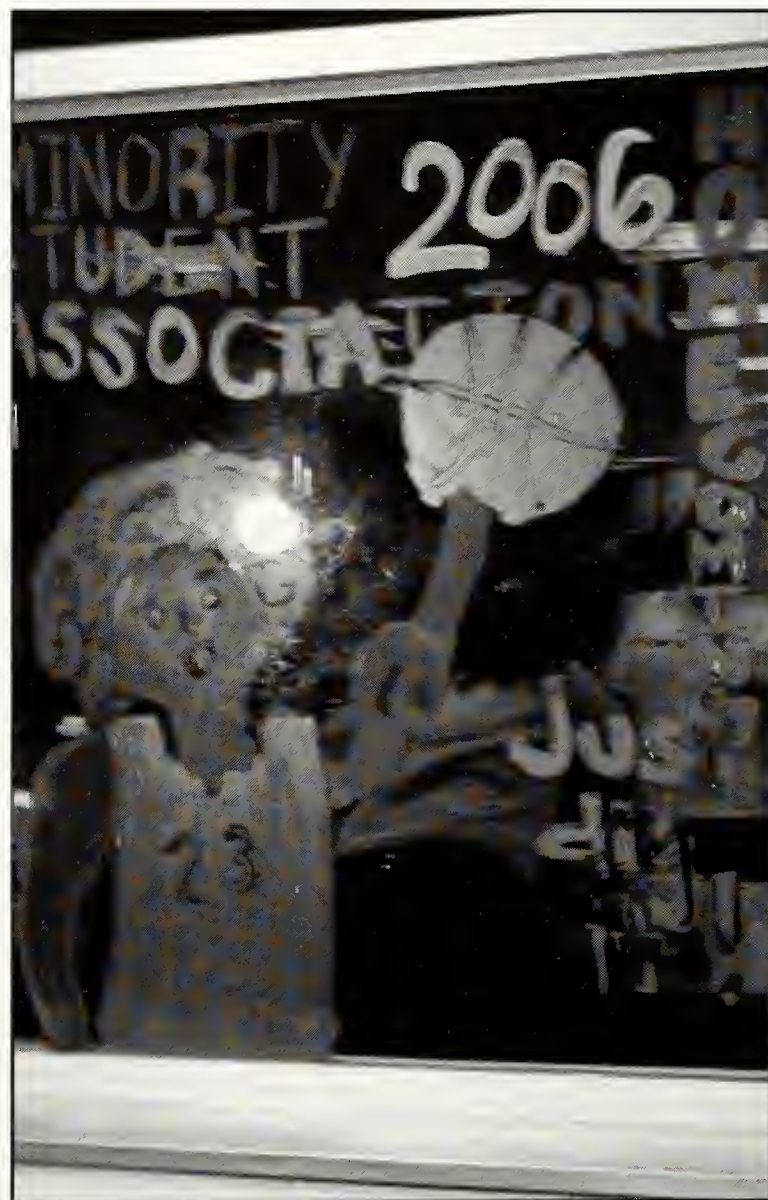 MINORITY
STUDENT
ASSOCIATION
2006
HOMECOMING
Just
did
IT
23